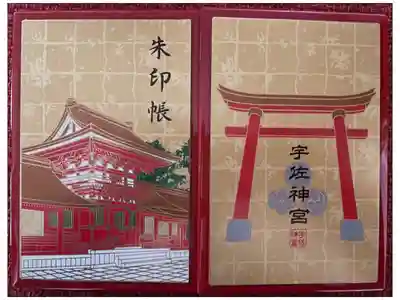 朱印帳
宇佐神宮